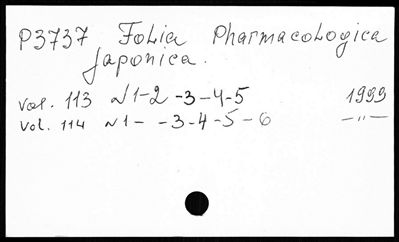 P3737 Folia Pharmacologica
Japonica.
vol. 113 N 1-2 -3-4-5 1999
Vol. 114 N 1- -3-4-5-6 -"-